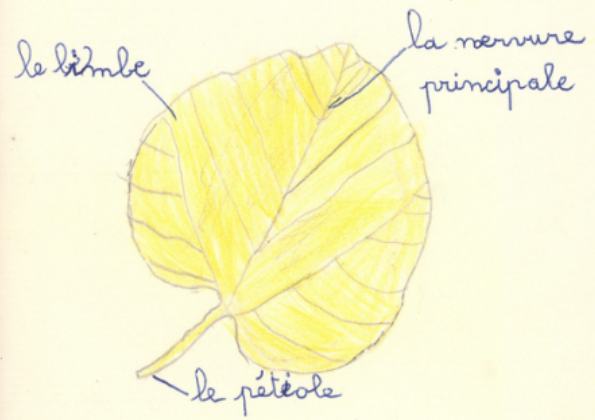 le limbe
la nervure
principale
le pétiole